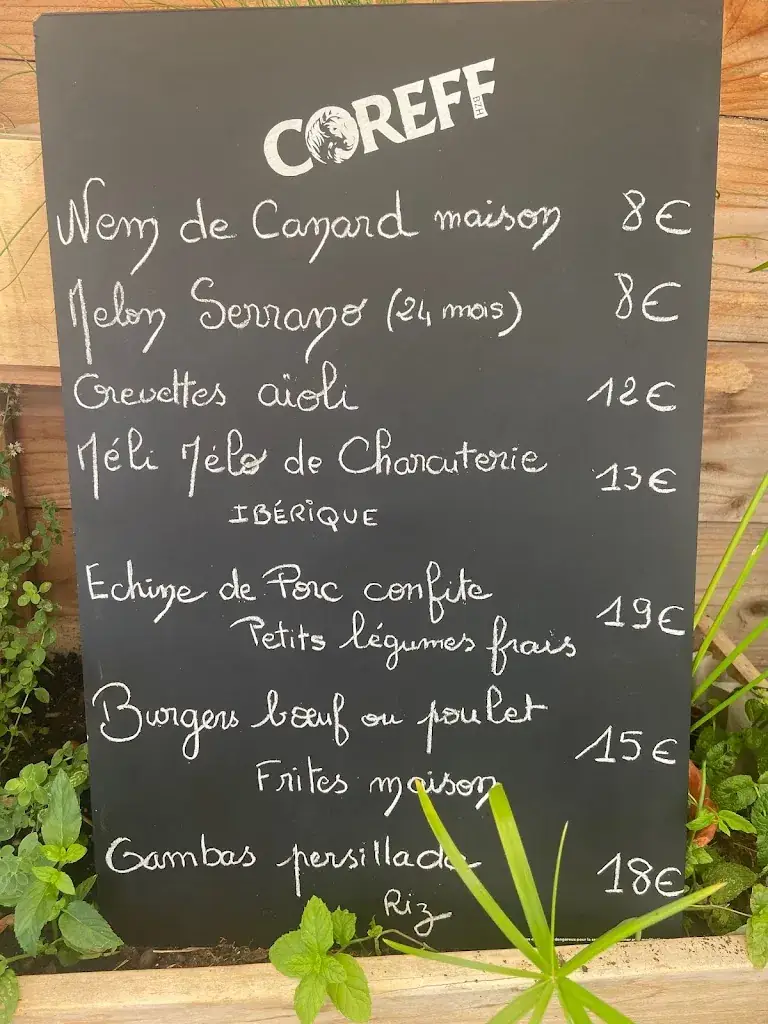 COREFF BZH
Nem de Canard maison 8€
Melon Serrano (24 mois) 8€
Crevettes aïoli 12€
Méli Mélo de Charcuterie 13€
IBÉRIQUE
Echine de Porc confite
Petits légumes frais 19€
Burgers bœuf ou poulet
Frites maison 15€
Gambas persillade 18€
Riz